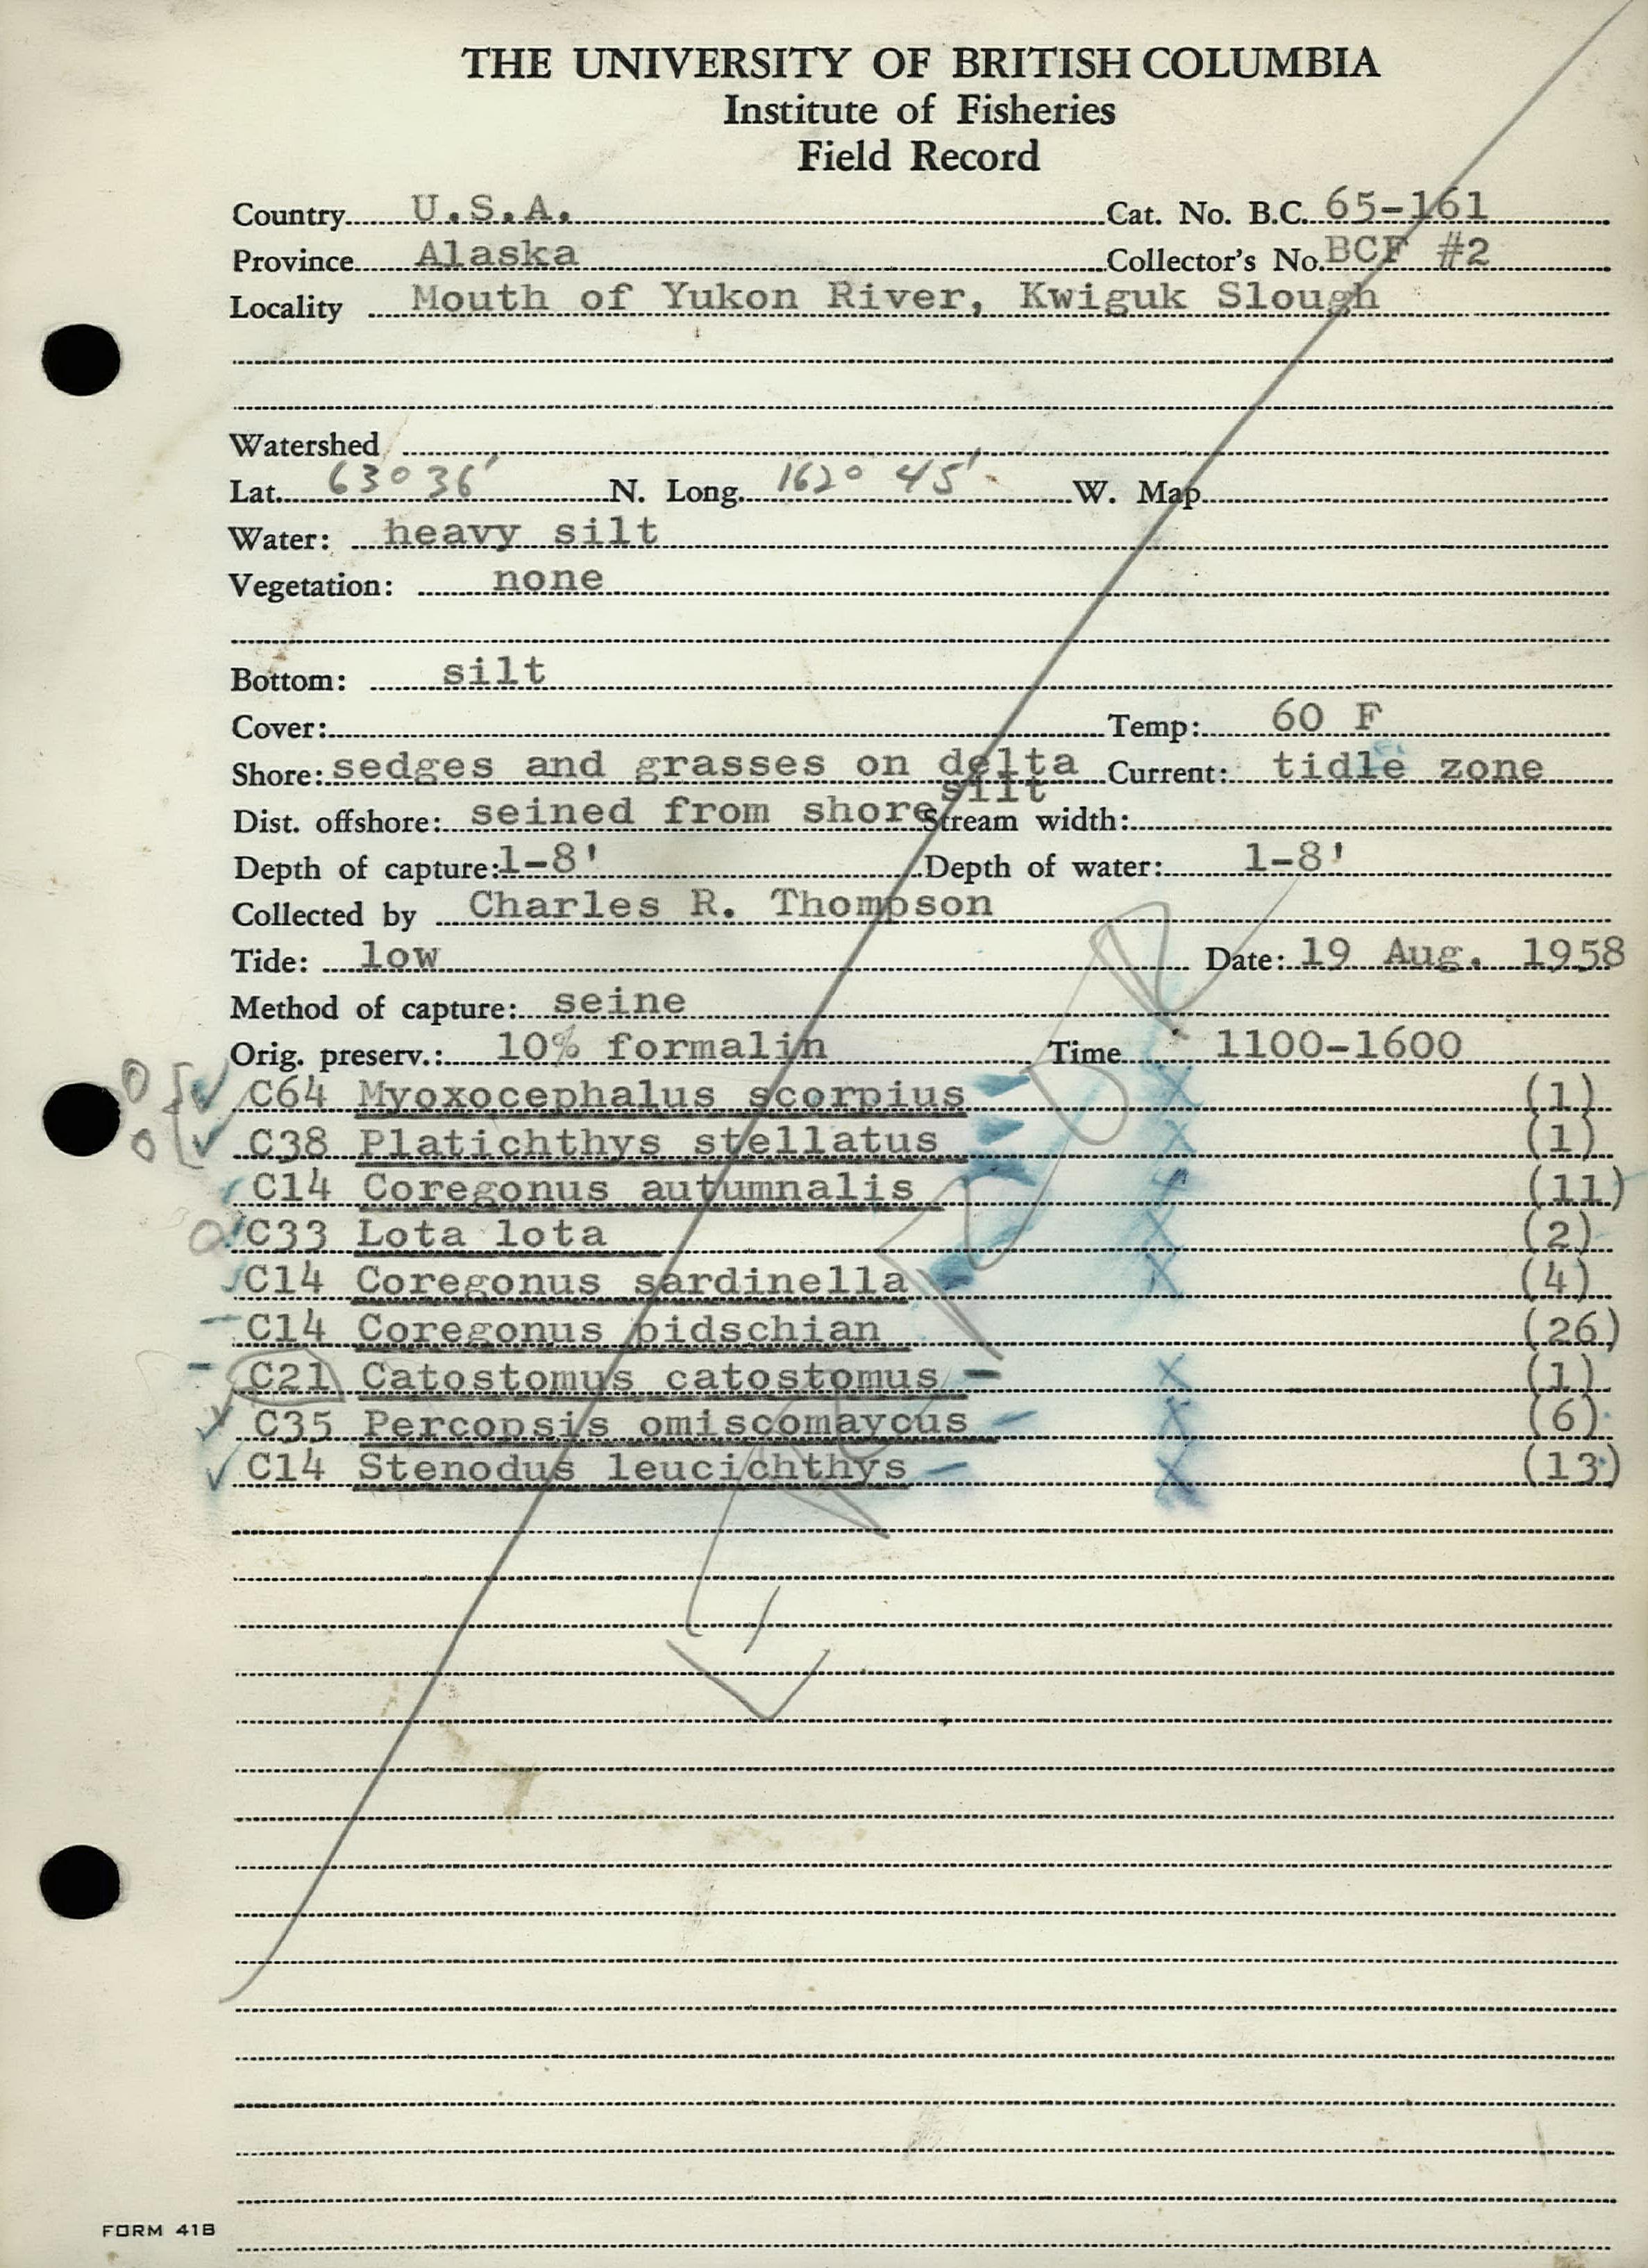 THE UNIVERSITY OF BRITISH COLUMBIA
Institute of Fisheries
Field Record
Country U.S.A. Cat. No. B.C. 65-161
Province Alaska Collector's No. BCF #2
Locality Mouth of Yukon River, Kwiguk Slough
Watershed
Lat. 63° 36' N. Long. 162° 45' W. Map
Water: heavy silt
Vegetation: none
Bottom: silt
Cover: Temp: 60 F
Shore: sedges and grasses on delta silt Current: tidle zone
Dist. offshore: seined from shore Stream width:
Depth of capture: 1-8' Depth of water: 1-8'
Collected by Charles R. Thompson
Tide: low Date: 19 Aug. 1958
Method of capture: seine
Orig. preserv.: 10% formalin Time 1100-1600
C64 Myoxocephalus scorpius (1)
C38 Platichthys stellatus (1)
C14 Coregonus autumnalis (11)
C33 Lota lota (2)
C14 Coregonus sardinella (4)
C14 Coregonus pidschian (26)
C21 Catostomus catostomus (1)
C35 Percopsis omiscomaycus (6)
C14 Stenodus leucichthys (13)
FORM 41B